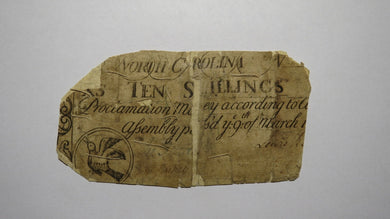 NORTH CAROLINA N
TEN SHILLINGS
Proclamation Money according to
Assembly pass'd ye 9th of March 1